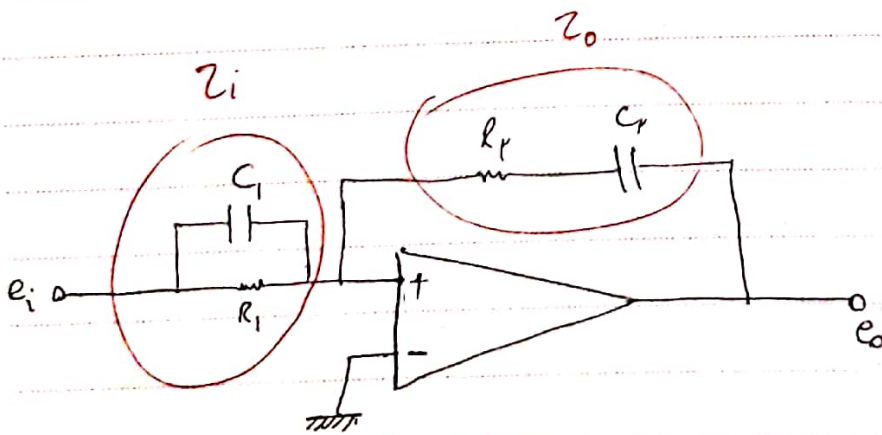 Z₀
Zᵢ
R₂ C₂
C₁
eᵢ
R₁
+
−
e₀